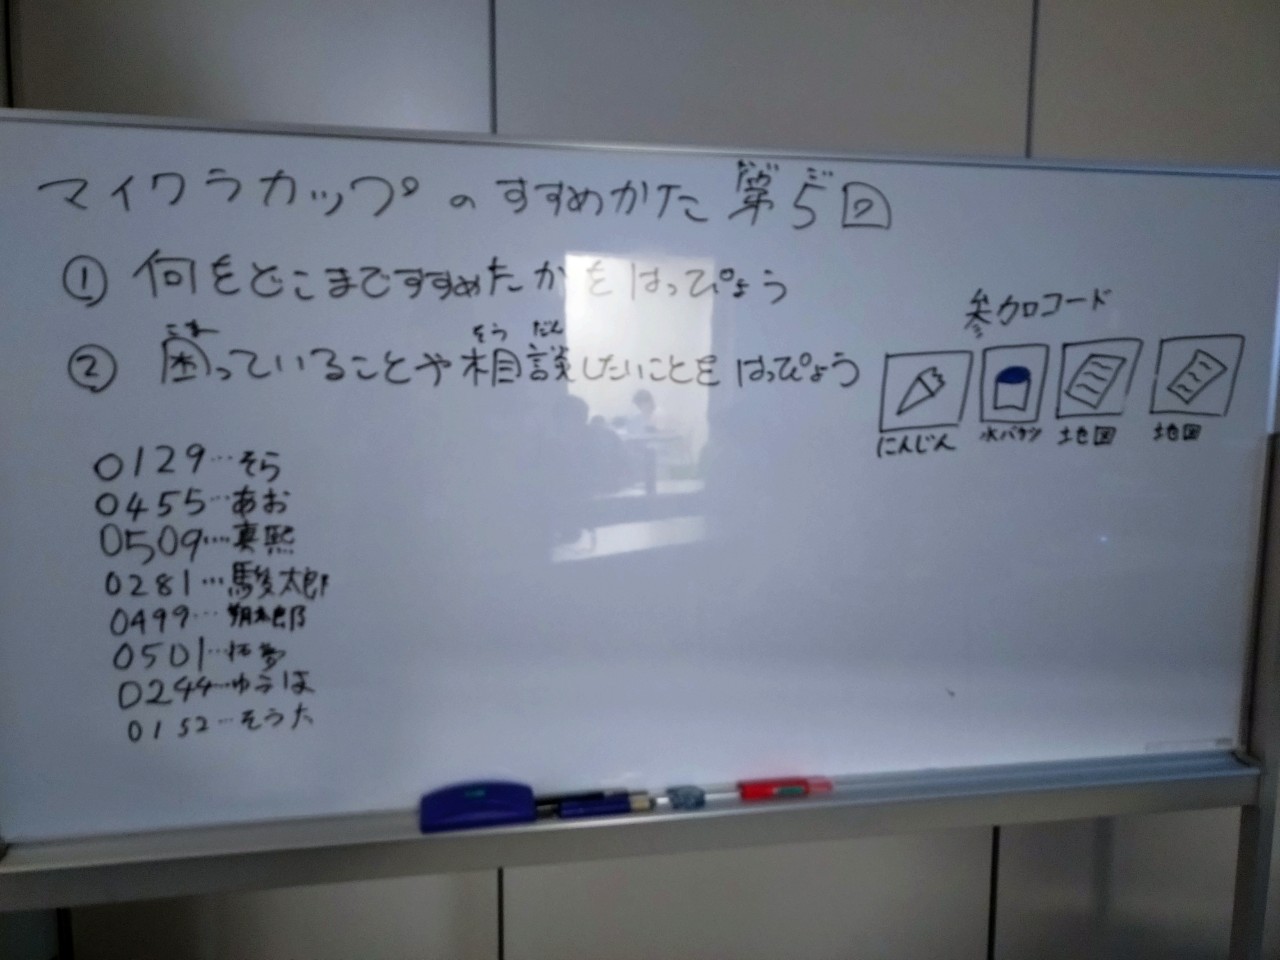 マイクラカップのすすめかた 第5回
だい ご
① 何をどこまですすめたかをはっぴょう
こま そう だん
② 困っていることや相談したいことをはっぴょう
参加コード
にんじん 水バケツ 地図 地図
0129…そら
0455…あお
0509…真熙
0281…駿太郎
0499…朔太郎
0501…拓夢
0244…ゆうは
0152…そうた